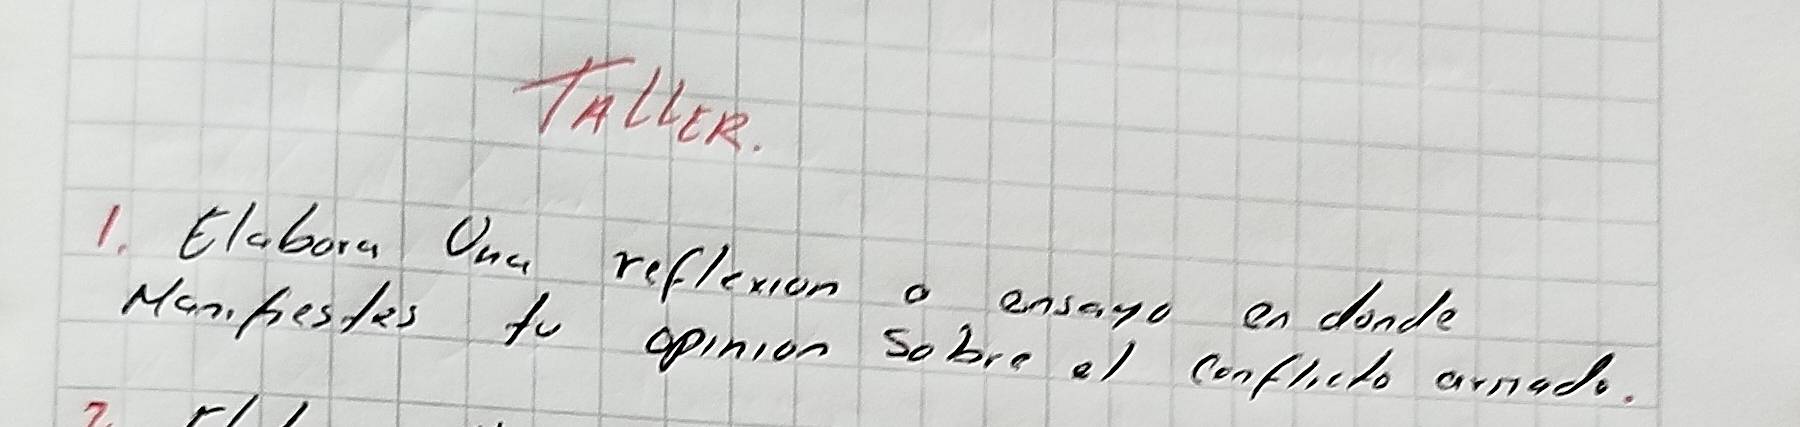 TALLER.
1. Elabora Una reflexion o ensayo en donde
Manifiestes tu opinion sobre el conflicto armado.
2.